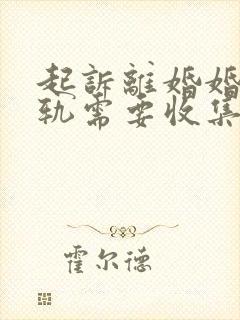 起訴離婚婚
軌需要收集
霍尔德